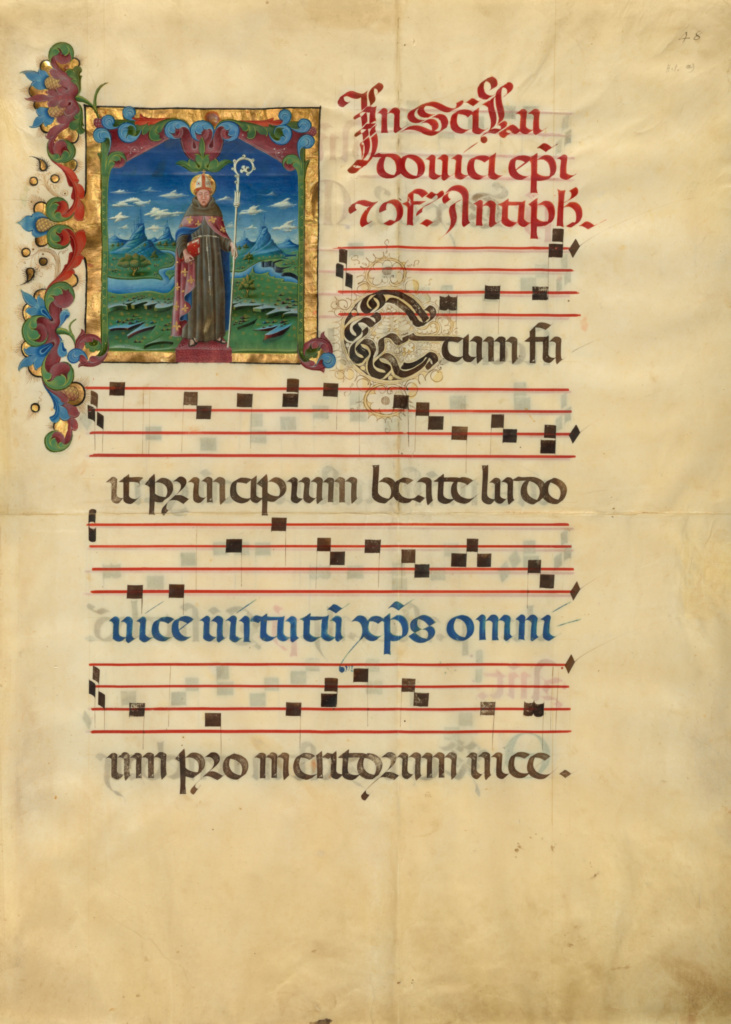 48
In Scī Lu
douici ep̄i
⁊ ɔf. Antiph̄.
Tecum fu
it principium beate ludo
uice uirtutū xp̄s omni
um pro meritorum uice .